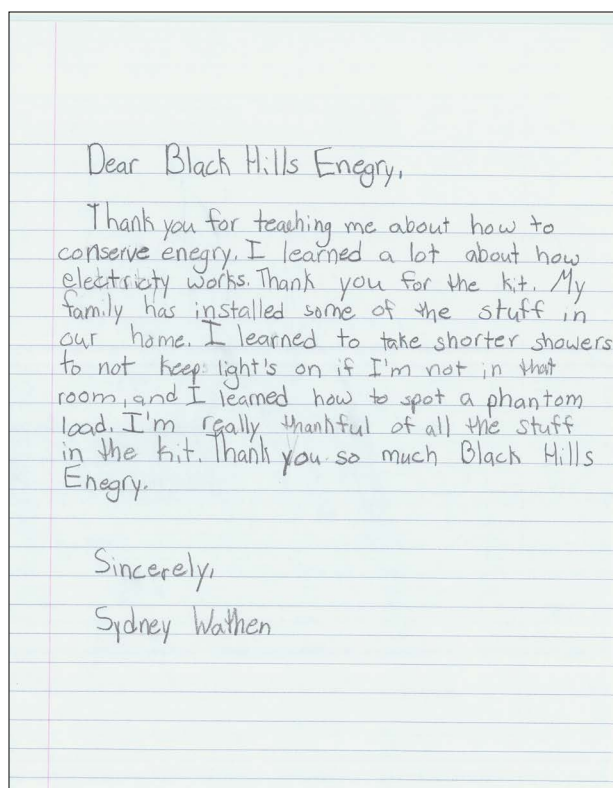 Dear Black Hills Enegry,
Thank you for teaching me about how to
conserve enegry. I learned a lot about how
electricty works. Thank you for the kit. My
family has installed some of the stuff in
our home. I learned to take shorter showers
to not keep light's on if I'm not in that
room, and I learned how to spot a phantom
load. I'm really thankful of all the stuff
in the kit. Thank you so much Black Hills
Enegry.
Sincerely,
Sydney Wathen